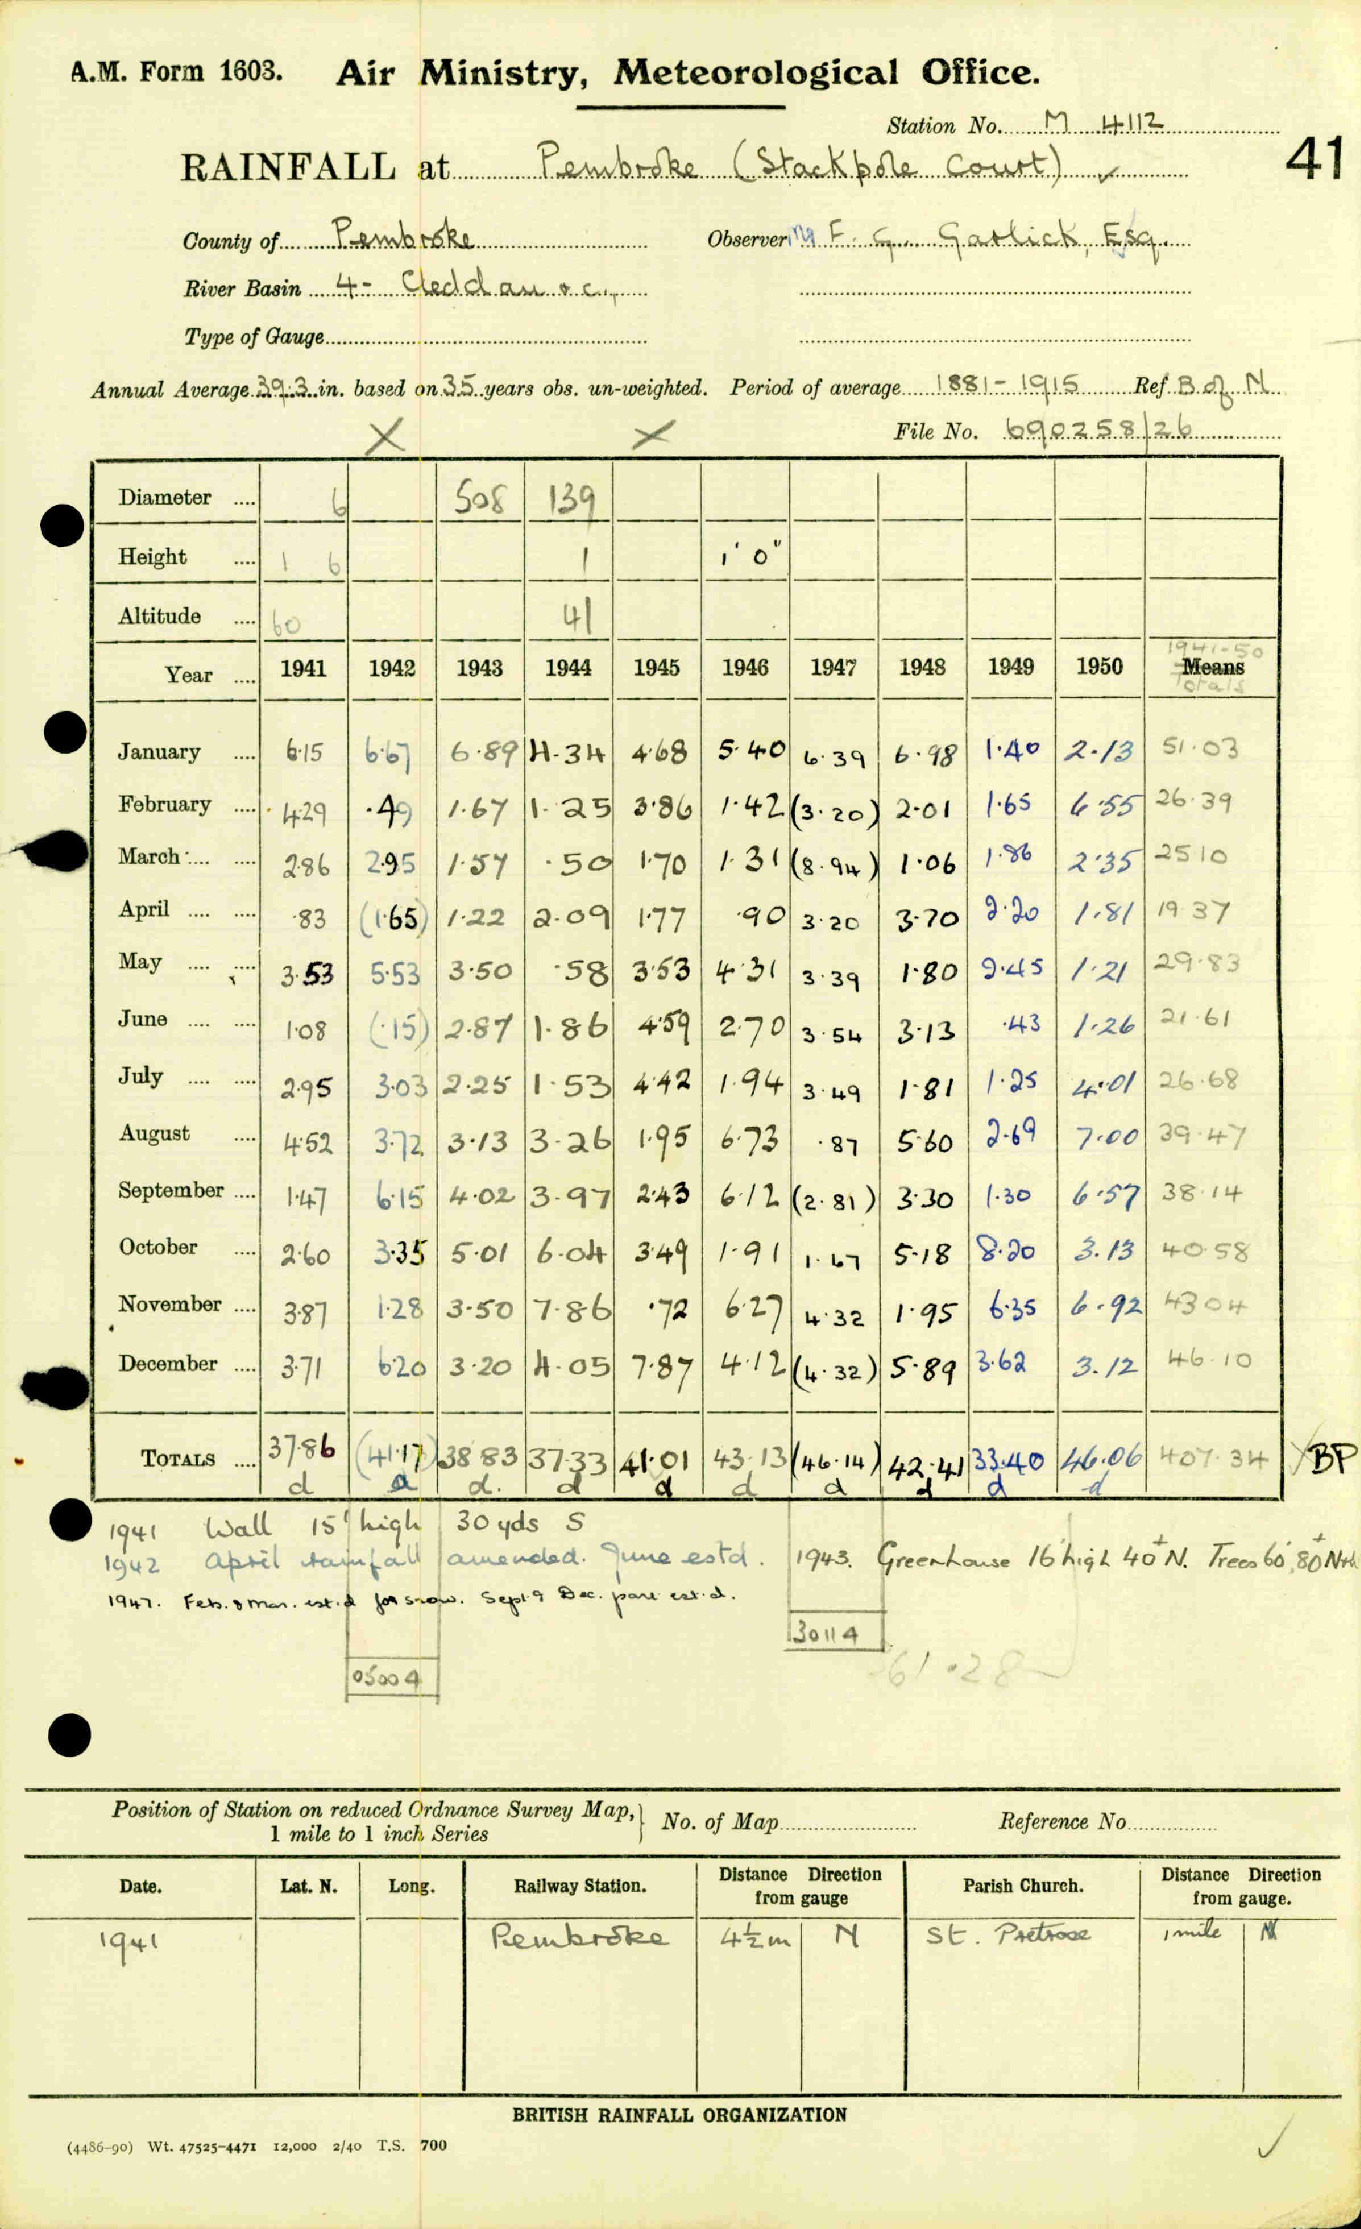 A.M. Form 1603. Air Ministry, Meteorological Office.
Station No. M 4112
41
RAINFALL at Pembroke (Stackpole Court) ✓
County of Pembroke Observer F. G. Garlick, Esq.
River Basin 4- Cleddau &c.,
Type of Gauge
Annual Average 39.3 in. based on 35 years obs. un-weighted. Period of average 1881-1915 Ref. B of N
File No. 690258/26
X X
Diameter .... 6 508 139
Height .... 1 6 1 1' 0"
Altitude .... 60 41
Year .... 1941 1942 1943 1944 1945 1946 1947 1948 1949 1950 1941-50 Means Totals
January .... 6.15 6.67 6.89 4.34 4.68 5.40 6.39 6.98 1.40 2.13 51.03
February .... 4.29 .49 1.67 1.25 3.86 1.42 (3.20) 2.01 1.65 6.55 26.39
March .... .... 2.86 2.95 1.57 .50 1.70 1.31 (8.94) 1.06 1.86 2.35 25 10
April .... .... .83 (1.65) 1.22 2.09 1.77 .90 3.20 3.70 2.20 1.81 19 37
May .... .... 3.53 5.53 3.50 .58 3.53 4.31 3.39 1.80 2.45 1.21 29.83
June .... .... 1.08 (.15) 2.87 1.86 4.59 2.70 3.54 3.13 .43 1.26 21.61
July .... .... 2.95 3.03 2.25 1.53 4.42 1.94 3.49 1.81 1.25 4.01 26.68
August .... 4.52 3.72 3.13 3.26 1.95 6.73 .87 5.60 2.69 7.00 39.47
September .... 1.47 6.15 4.02 3.97 2.43 6.12 (2.81) 3.30 1.30 6.57 38.14
October .... 2.60 3.35 5.01 6.04 3.49 1.91 1.67 5.18 8.20 3.13 40.58
November .... 3.87 1.28 3.50 7.86 .72 6.27 4.32 1.95 6.35 6.92 43 04
December .... 3.71 6.20 3.20 4.05 7.87 4.12 (4.32) 5.89 3.62 3.12 46.10
TOTALS .... 37.86 (41.17) 38 83 37.33 41.01 43.13 (46.14) 42.41 33.40 46.06 407.34 BP
d a d. d d d d d d d
1941 Wall 15' high 30 yds S
1942 April rainfall amended. June estd. 1943. Greenhouse 16' high 40+ N. Trees 60', 80+ Nth
1947. Feb. & Mar. est.d for snow. Sept & Dec. part est.d.
30114
61.28
05004
Position of Station on reduced Ordnance Survey Map, 1 mile to 1 inch Series No. of Map Reference No.
Date. Lat. N. Long. Railway Station. Distance Direction from gauge Parish Church. Distance Direction from gauge.
1941 Pembroke 4½ m N St. Petrose 1 mile N
BRITISH RAINFALL ORGANIZATION
(4486-90) Wt. 47525-4471 12,000 2/40 T.S. 700
✓